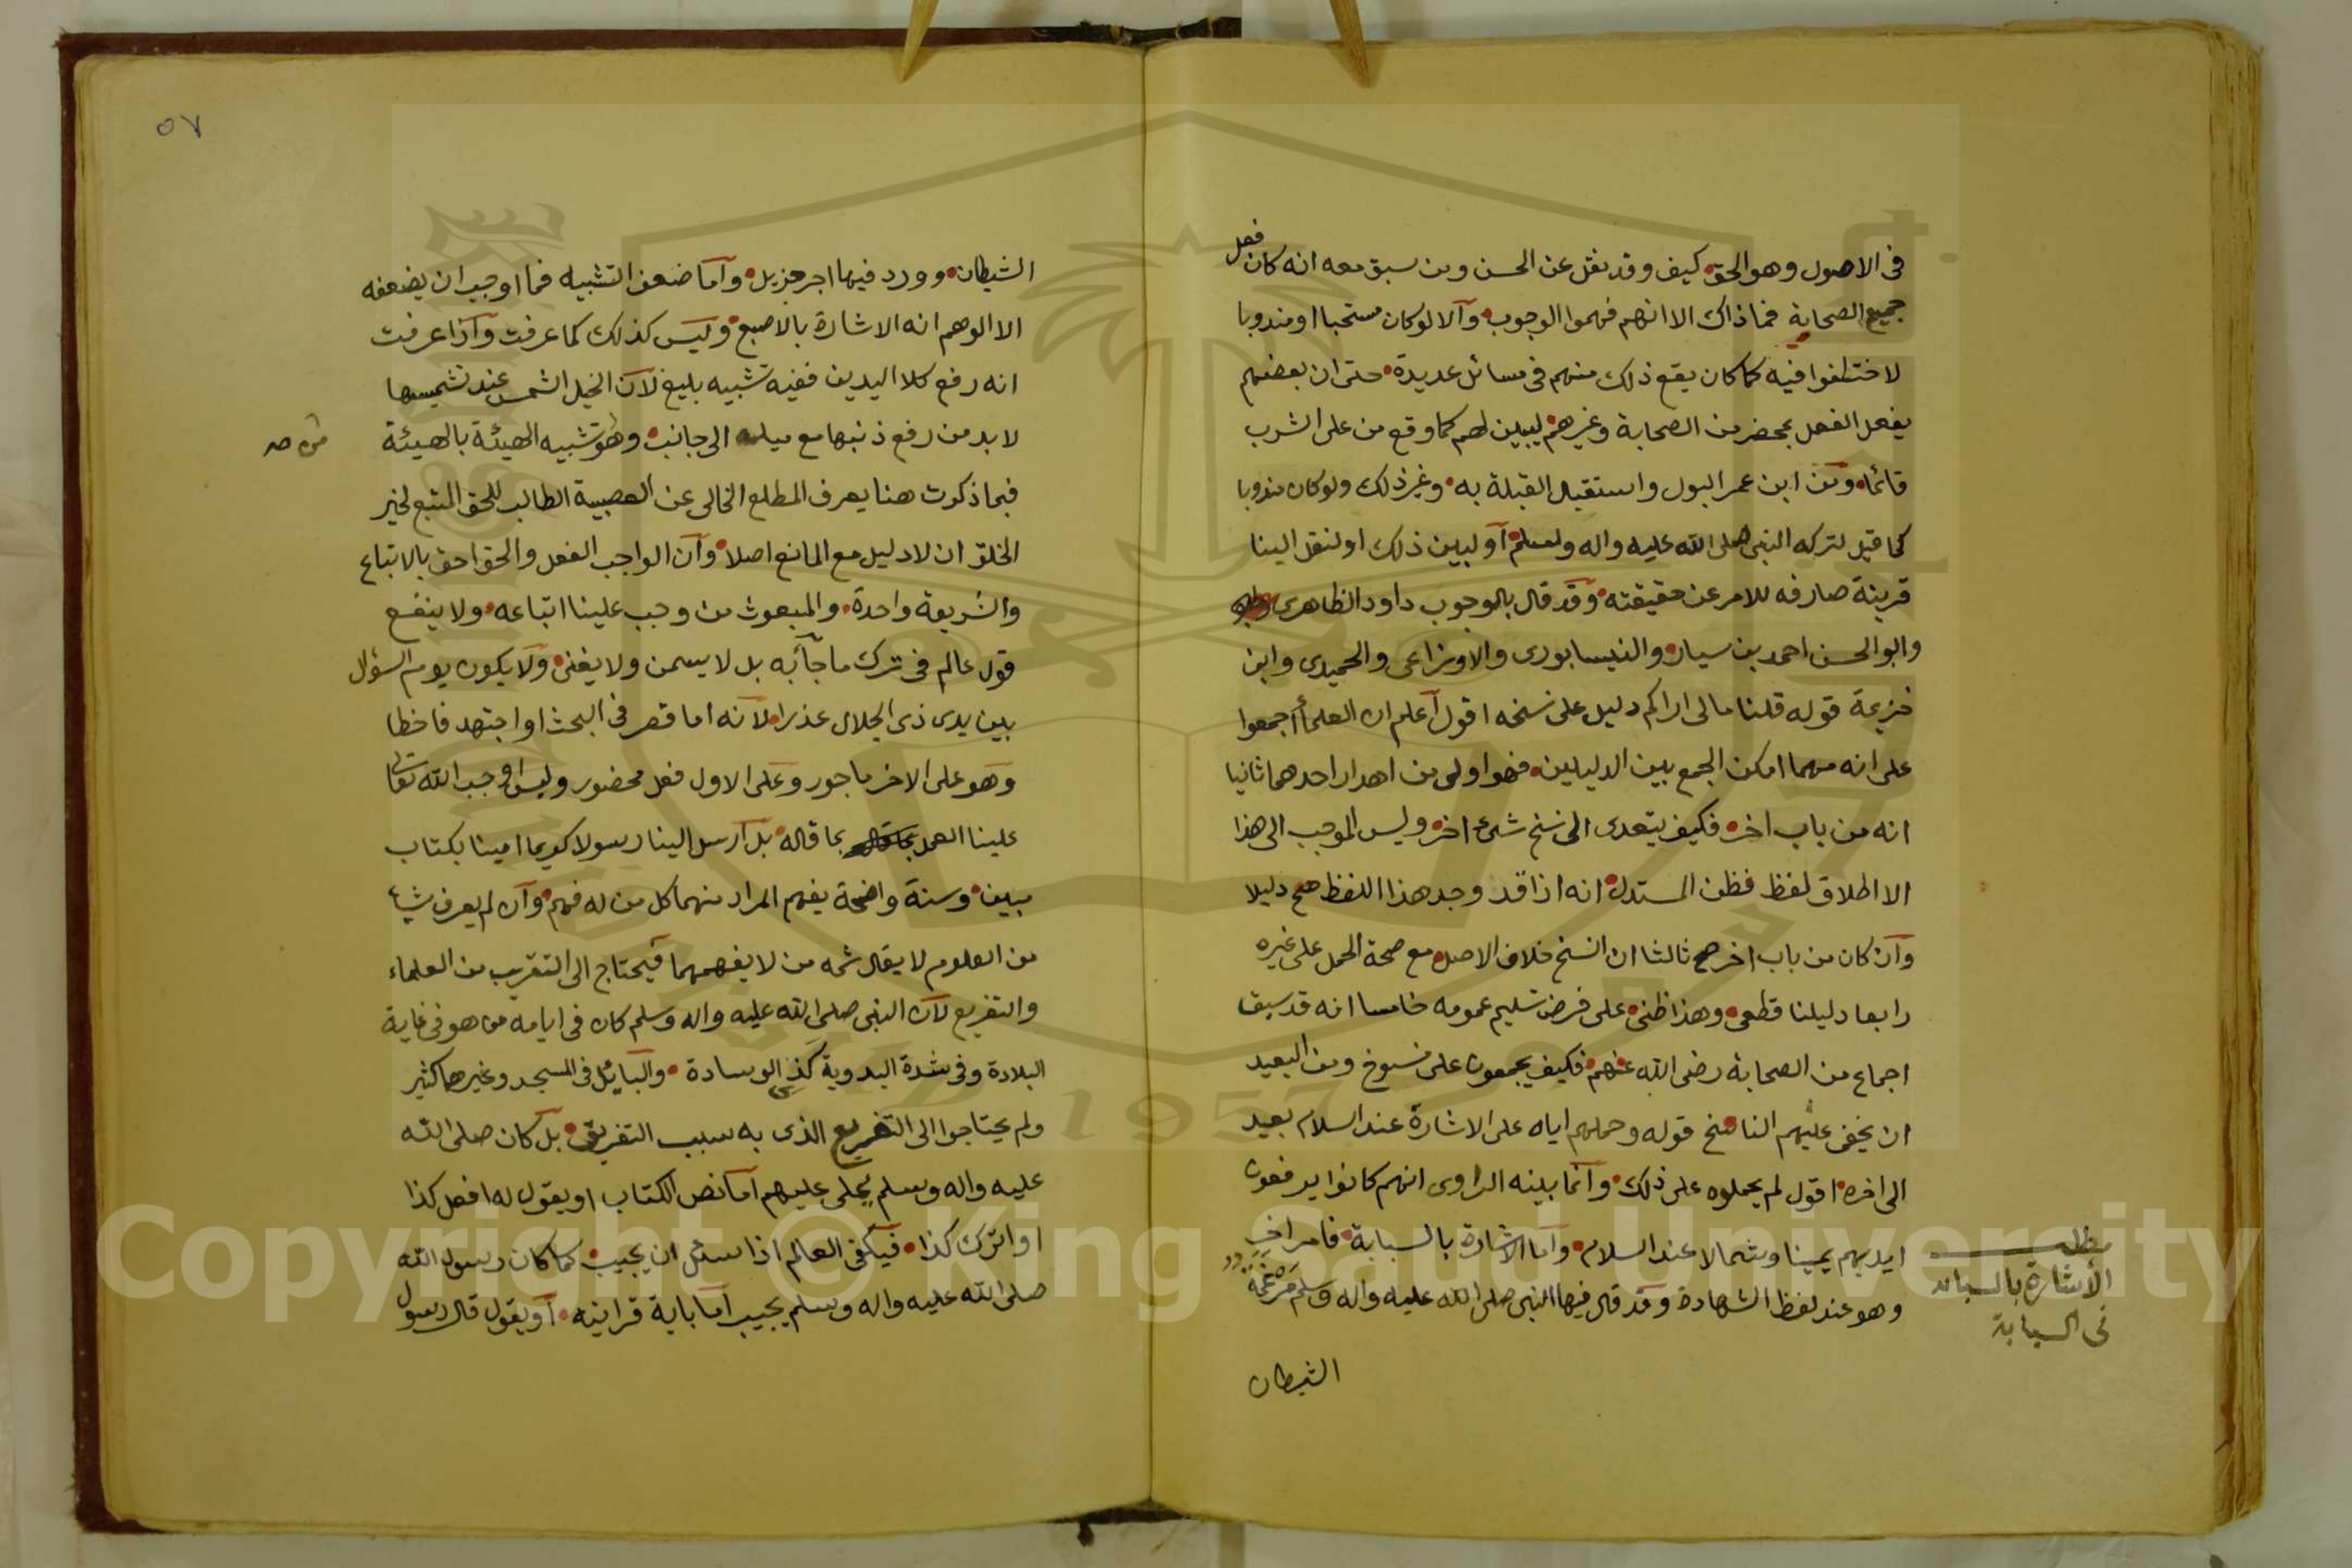 في الاصول وهو الحق كيف وقد نقل عن الحسن ومن سبق معه انه كان فعل
جميع الصحابة فما ذاك الا انهم فهموا الوجوب والا لو كان مستحبا او مندوبا
لاختلفوا فيه كما كان يقع ذلك منهم في مسائل عديدة حتى ان بعضهم
يفعل الفعل بمحضر من الصحابة وغيرهم ليبين لهم كما وقع من على الشرب
قائما ومن ابن عمر البول واستقبال القبلة به وغير ذلك ولو كان مندوبا
كما قيل لتركه النبي صلى الله عليه واله وسلم او لبين ذلك او لنقل الينا
قرينة صارفه للامر عن حقيقته وقد قال بالوجوب داود الظاهرى
وابو الحسن احمد بن سيار والنيسابورى والاوزاعى والحميدى وابن
خزيمة قوله قلنا مالى اراكم دليل على نسخه اقول اعلم ان العلمأ اجمعوا
على انه مهما امكن الجمع بين الدليلين فهو اولى من اهدار احدهما ثانيا
انه من باب اخر فكيف يتعدى الى نسخ شىء اخر وليس الموجب الى هذا
الا اطلاق لفظ فظن المستدل انه اذا قد وجد هذا اللفظ صح دليلا
وان كان من باب اخر صح ثالثا ان النسخ خلاف الاصل مع صحة الحمل على غيره
رابعا دليلنا قطعى وهذا ظنى على فرض تسليم عمومه خامسا انه قد سبق
اجماع من الصحابة رضى الله عنهم فكيف يجمعون على منسوخ ومن البعيد
ان يخفى عليهم الناسخ قوله وحملهم اياه على الاشارة عند السلام بعيد
الى اخره اقول لم يحملوه على ذلك وانما بينه الراوى انهم كانوا يرفعون
ايديهم يمينا وشمالا عند السلام واما الاشارة بالسبابة فامر اخر
وهو عند لفظ الشهادة وقد قال فيها النبي صلى الله عليه واله وسلم مرغمة
الاشارة بالسبابه
في السبابة
الشيطان
٥٧
الشيطان وورد فيها اجر جزيل واما ضعف التشبيه فما اوجب ان يضعفه
الا الوهم انه الاشارة بالاصبع وليس كذلك كما عرفت واذا عرفت
انه رفع كلا اليدين ففيه تشبيه بليغ لان الخيل الشمس عند تشميسها
لا بد من رفع ذنبها مع ميله الى جانب وهو تشبيه الهيئة بالهيئة
فبما ذكرت هنا يعرف المطلع الخالى عن العصبية الطالب للحق المتبع لخير
الخلق ان لا دليل مع المانع اصلا وان الواجب الفعل والحق احق بالاتباع
والشريعة واحدة والمبعوث من وجب علينا اتباعه ولا ينفع
قول عالم في ترك ما جأبه بل لا يسمن ولا يغنى ولا يكون يوم السؤال
بين يدى ذى الجلال عذرا لانه اما قصر في البحث او اجتهد فاخطا
وهو على الاخر ماجور وعلى الاول فعل محضور وليس اوجب الله تعالى
علينا العمل بما قاله بل ارسل الينا رسولا كريما امينا بكتاب
مبين وسنة واضحة يفهم المراد منهما كل من له فهم وان لم يعرف شيأ
من العلوم لا يقال ثمه من لا يفهمهما فيحتاج الى التقريب من العلماء
والتفريع لان النبي صلى الله عليه واله وسلم كان في ايامه من هو في غاية
البلادة وفي شدة البدوية كذى الوسادة والبايل في المسجد وغيرهما كثير
ولم يحتاجوا الى التفريع الذى به سبب التفريق بل كان صلى الله
عليه واله وسلم يملى عليهم اما نص الكتاب او يقول له افعل كذا
او اترك كذا فيكفى العالم اذا سئل ان يجيب كما كان رسول الله
صلى الله عليه واله وسلم يجيب اما باية قرانيه او يقول قال رسول
Copyright © King Saud University
1957